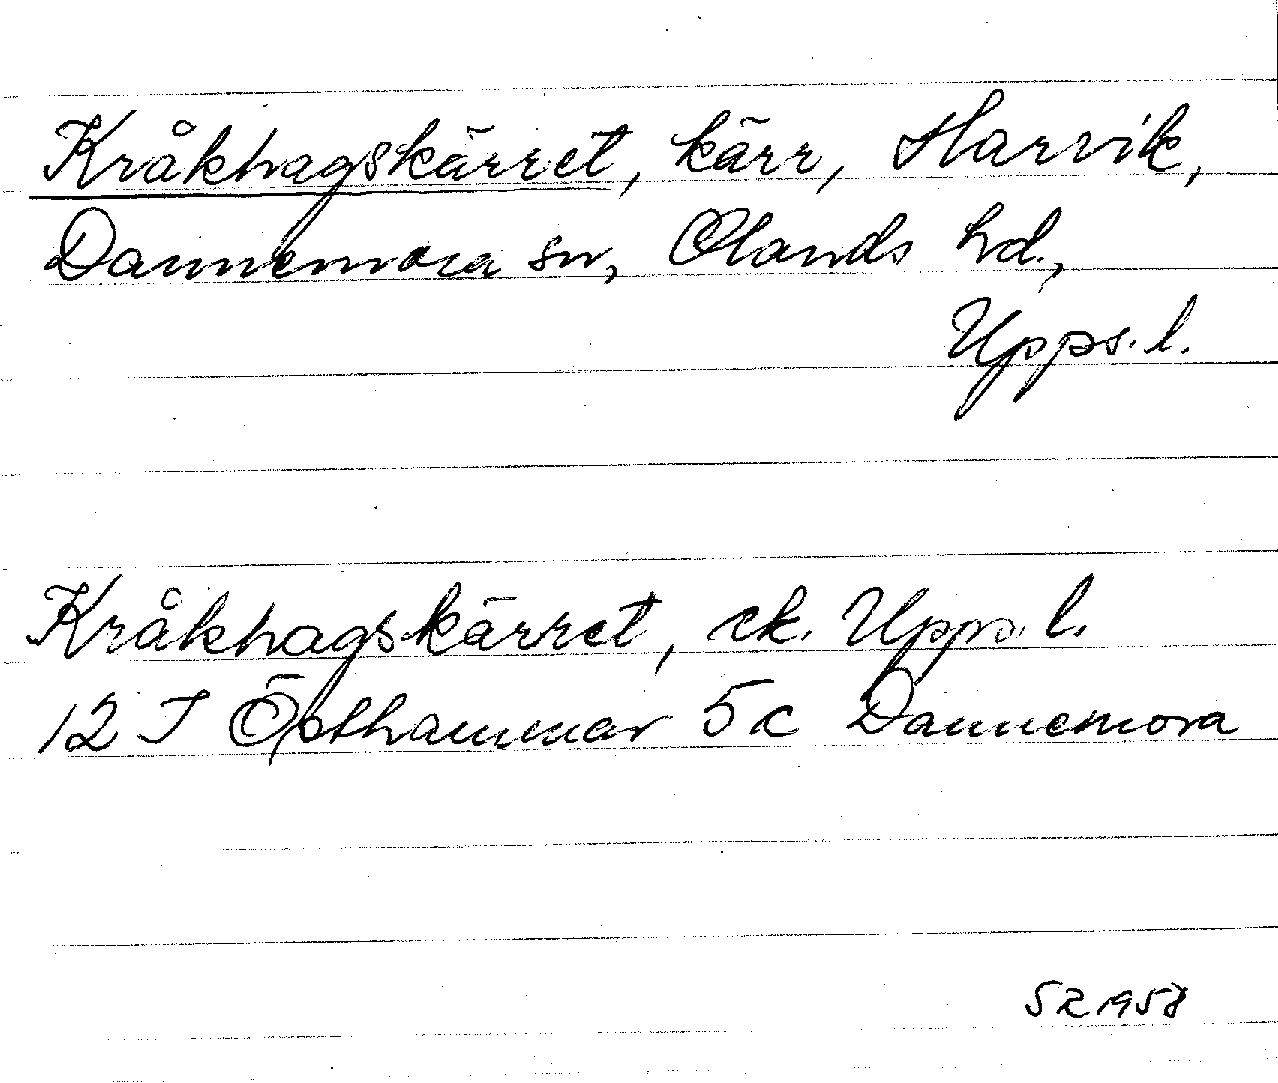 Kråkhagskärret, kärr, Harvik,
Dannemora sn, Olands hd.,
Upps. l.
Kråkhagskärret, ek. Upps. l.
12 I Östhammar 5 c Dannemora
SR 1958